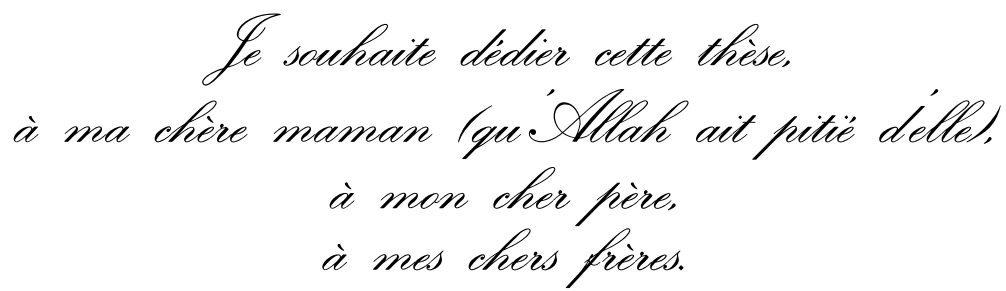 Je souhaite dédier cette thèse,
à ma chère maman (qu'Allah ait pitié d'elle),
à mon cher père,
à mes chers frères.